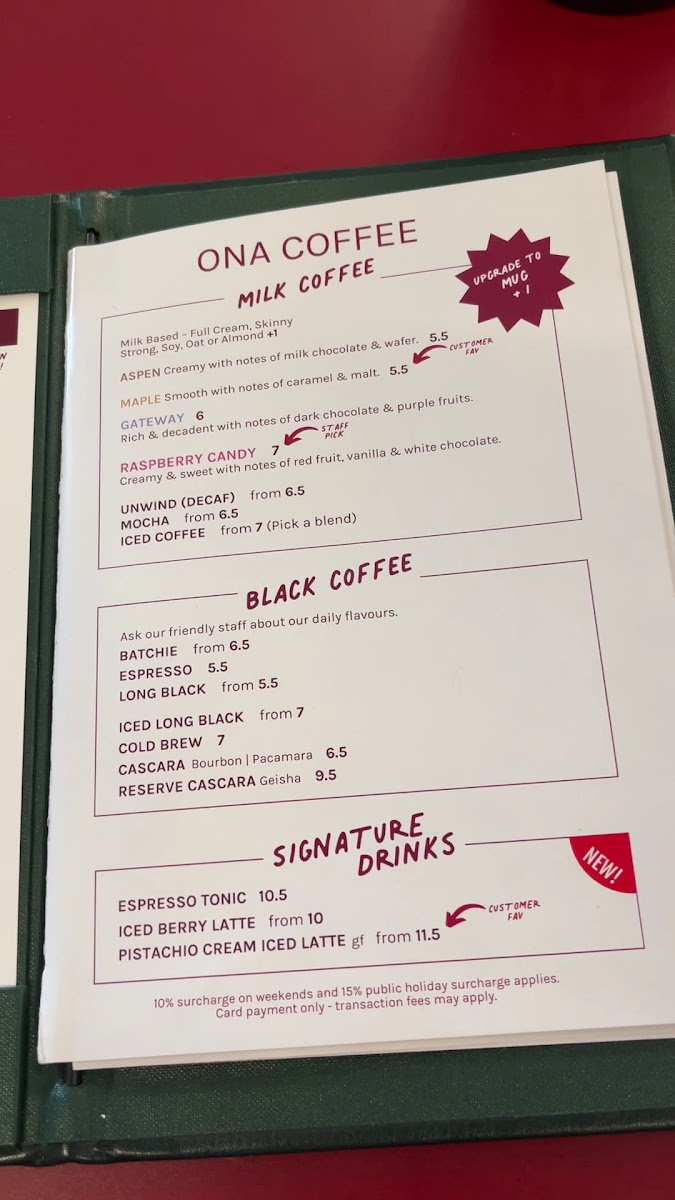 ONA COFFEE
MILK COFFEE
UPGRADE TO
MUG
+1
Milk Based - Full Cream, Skinny
Strong, Soy, Oat or Almond +1
ASPEN Creamy with notes of milk chocolate & wafer. 5.5
MAPLE Smooth with notes of caramel & malt. 5.5
CUSTOMER
FAV
GATEWAY 6
Rich & decadent with notes of dark chocolate & purple fruits.
RASPBERRY CANDY 7
STAFF
PICK
Creamy & sweet with notes of red fruit, vanilla & white chocolate.
UNWIND (DECAF) from 6.5
MOCHA from 6.5
ICED COFFEE from 7 (Pick a blend)
BLACK COFFEE
Ask our friendly staff about our daily flavours.
BATCHIE from 6.5
ESPRESSO 5.5
LONG BLACK from 5.5
ICED LONG BLACK from 7
COLD BREW 7
CASCARA Bourbon | Pacamara 6.5
RESERVE CASCARA Geisha 9.5
SIGNATURE
DRINKS
NEW!
ESPRESSO TONIC 10.5
ICED BERRY LATTE from 10
PISTACHIO CREAM ICED LATTE gf from 11.5
CUSTOMER
FAV
10% surcharge on weekends and 15% public holiday surcharge applies.
Card payment only - transaction fees may apply.